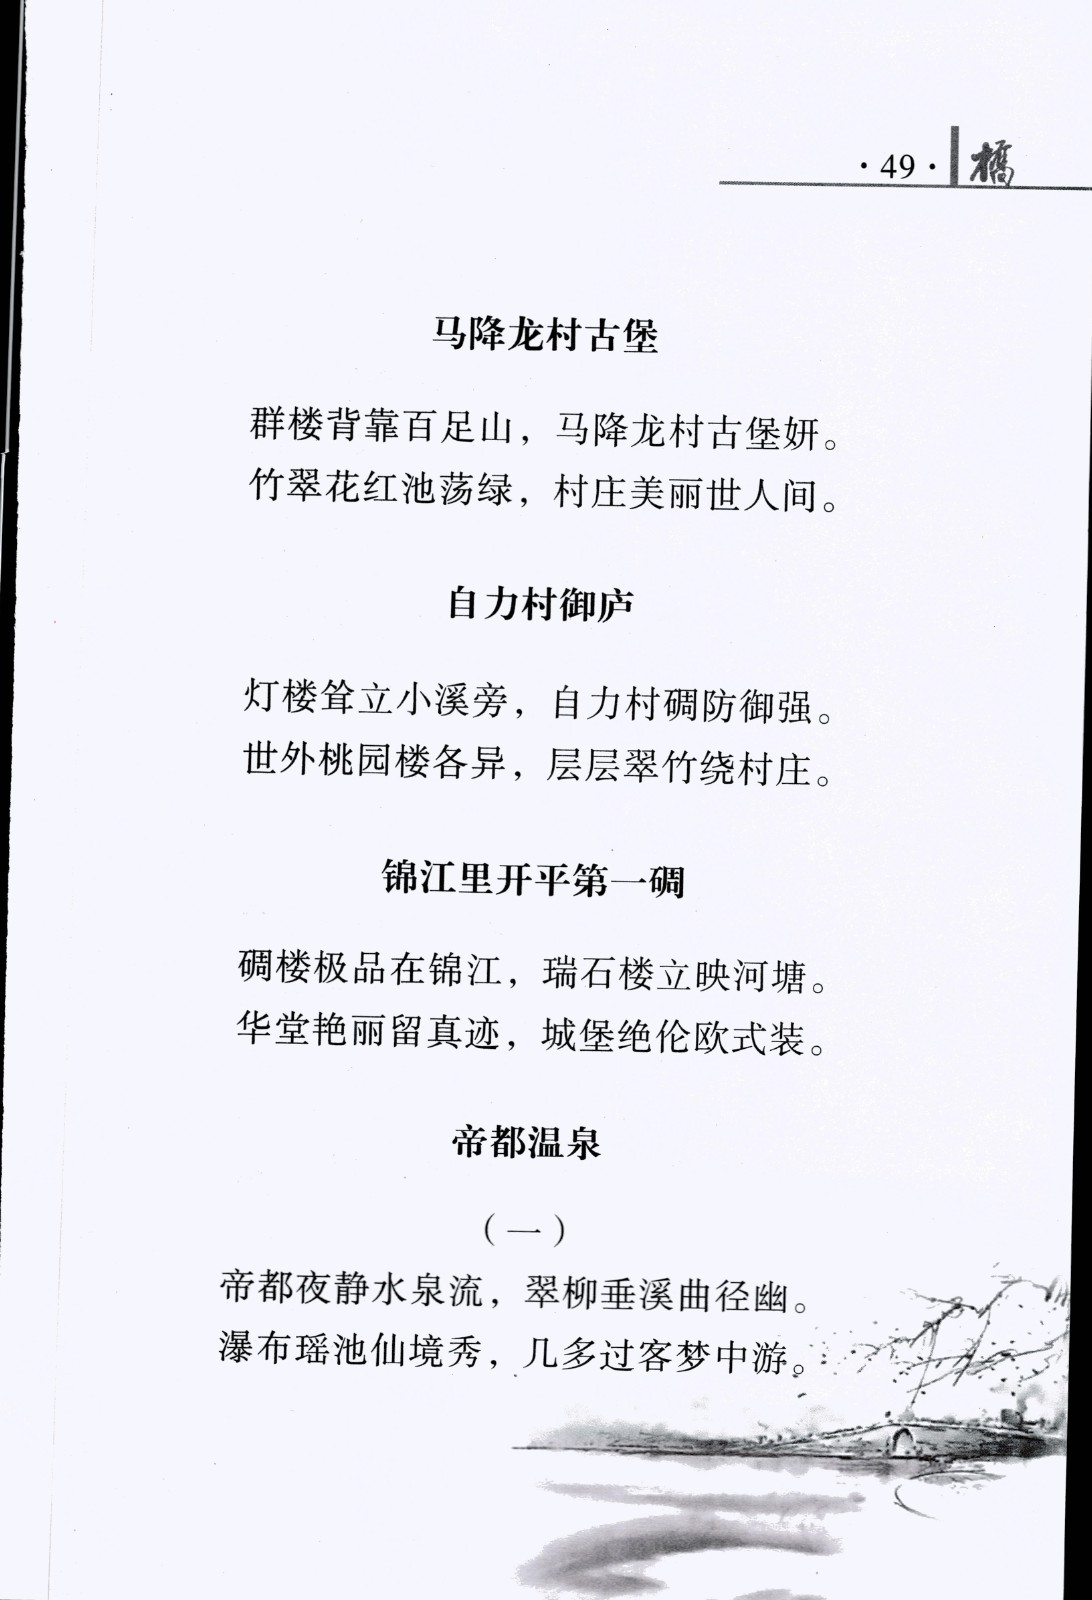 ·49· 橋
马降龙村古堡
群楼背靠百足山，马降龙村古堡妍。
竹翠花红池荡绿，村庄美丽世人间。
自力村御庐
灯楼耸立小溪旁，自力村碉防御强。
世外桃园楼各异，层层翠竹绕村庄。
锦江里开平第一碉
碉楼极品在锦江，瑞石楼立映河塘。
华堂艳丽留真迹，城堡绝伦欧式装。
帝都温泉
（一）
帝都夜静水泉流，翠柳垂溪曲径幽。
瀑布瑶池仙境秀，几多过客梦中游。